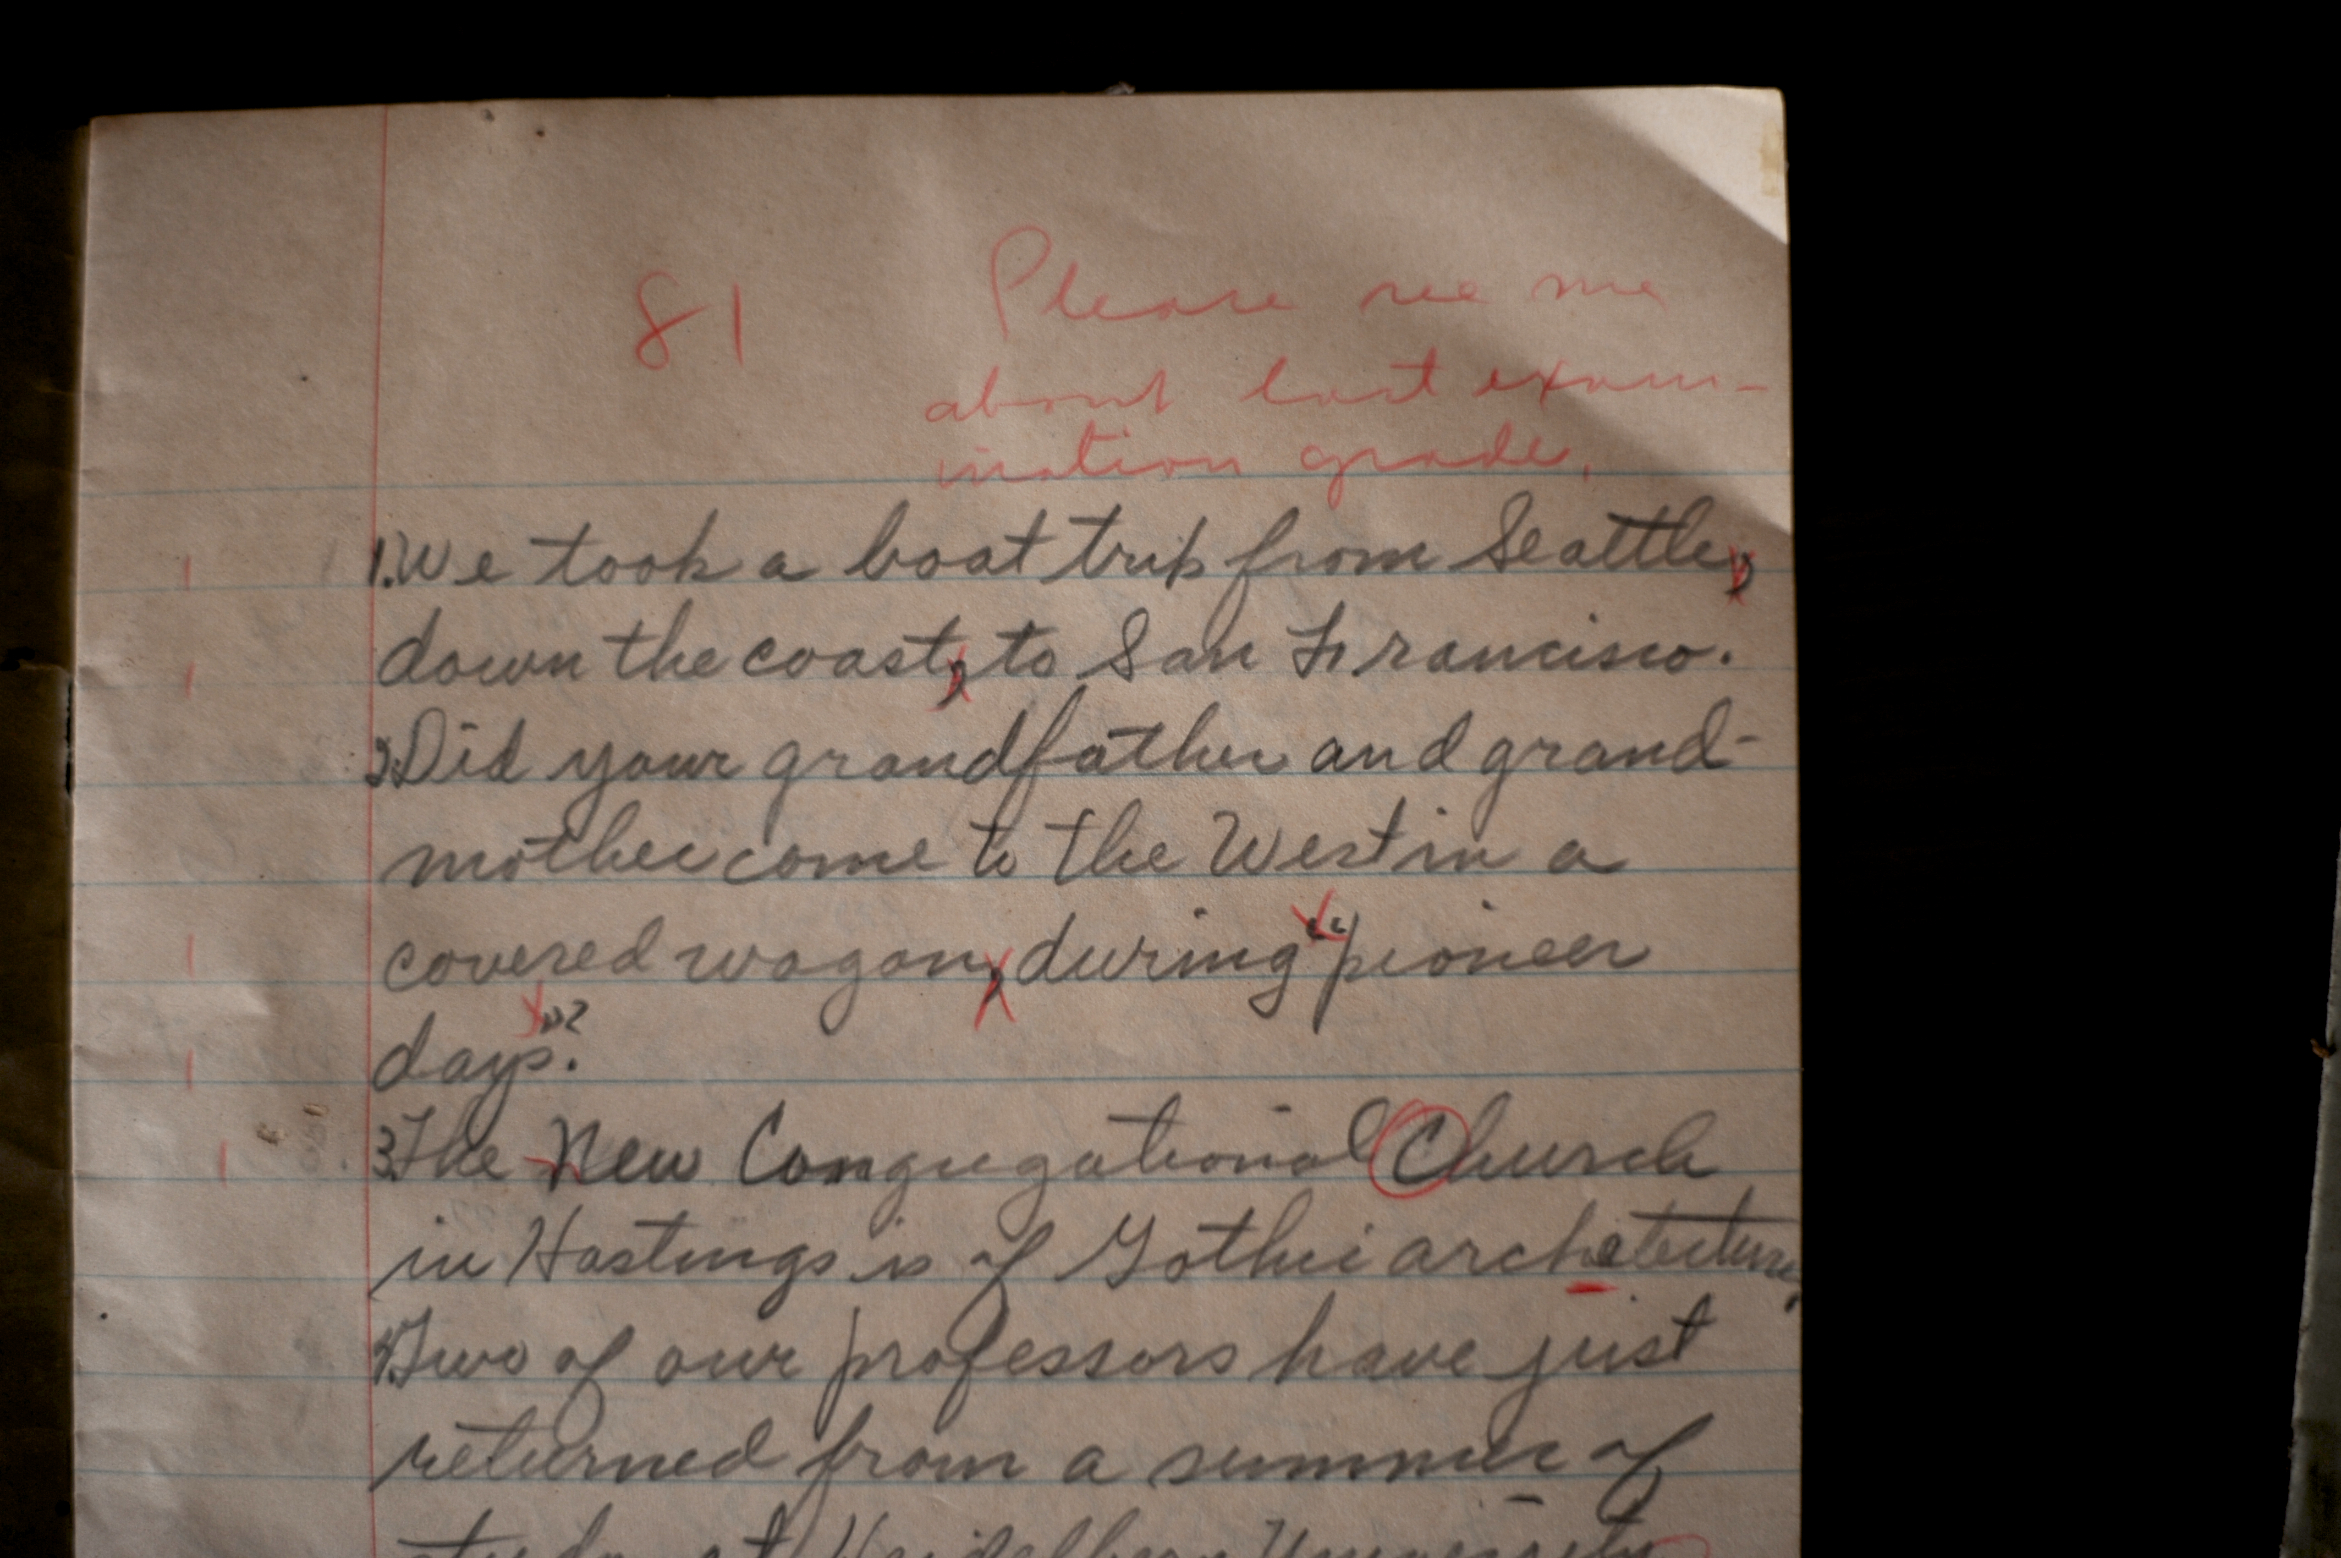 81
Please see me
about last exam-
ination grade.
1. We took a boat trip from Seattle,
down the coast, to San Francisco.
2. Did your grandfather and grand-
mother come to the West in a
covered wagon, during "pioneer
days"?
3. The New Congregational Church
in Hastings is of Gothic archetecture.
4. Two of our professors have just
returned from a summer of
study at Heidelberg University